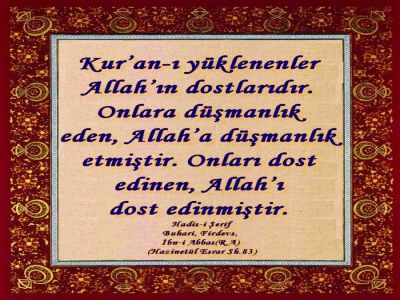 Kur'an-ı yüklenenler
Allah'ın dostlarıdır.
Onlara düşmanlık
eden, Allah'a düşmanlık
etmiştir. Onları dost
edinen, Allah'ı
dost edinmiştir.
Hadis-i Şerif
Buhari, Firdevs,
İbn-i Abbas(R.A)
(Hazinetül Esrar Sh.83)